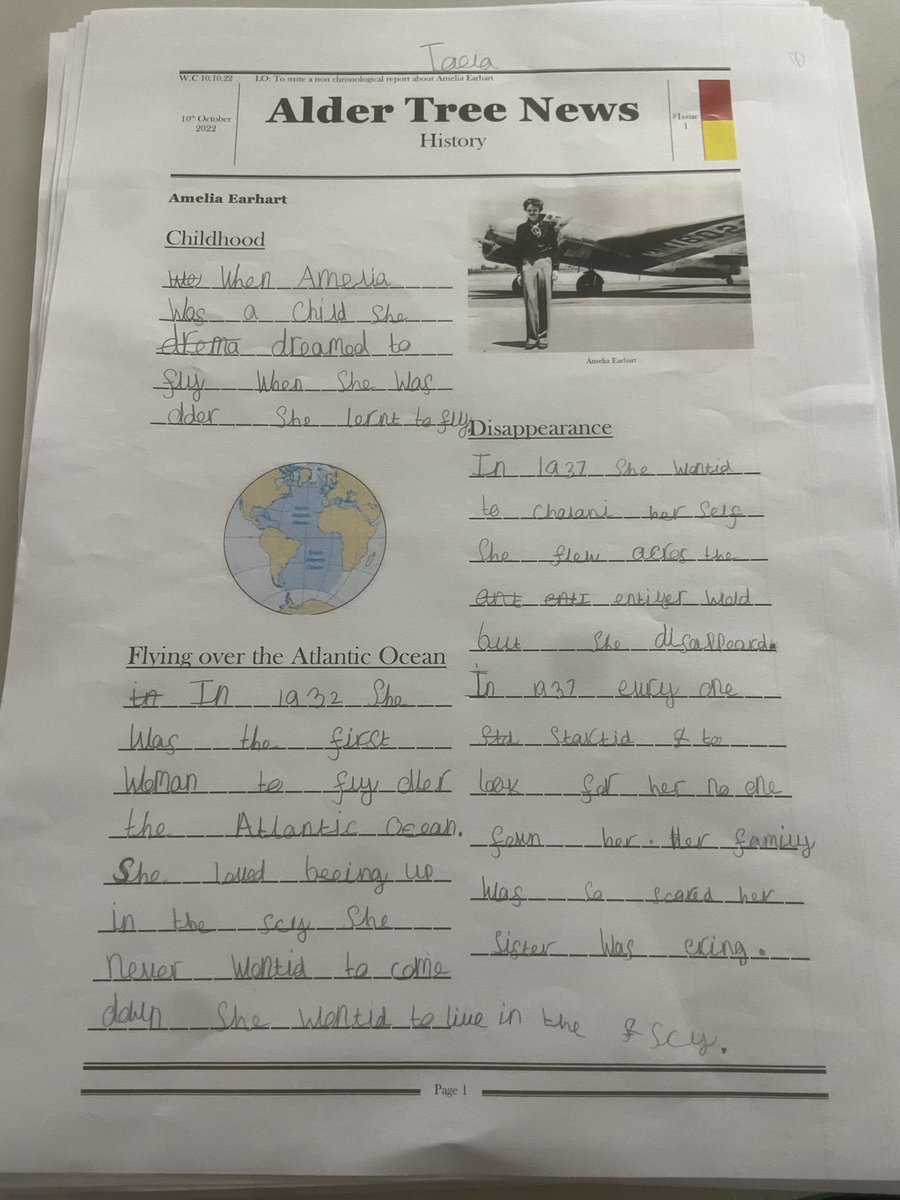 Taela
W.C 10.10.22 LO: To write a non chronological report about Amelia Earhart
10th October
2022
Alder Tree News
History
#Issue
1
Amelia Earhart
Childhood
When Amelia
Was a child She
drema dreamed to
fly When She Was
older She lernt to fly.
Amelia Earhart
North
Atlantic
Ocean
South
Atlantic
Ocean
Flying over the Atlantic Ocean
in In 1932 She
Was the first
Woman to fly over
the Atlantic Ocean.
She loved beeing up
in the scy She
never Wontid to come
down She Wontid to live in the scy.
Disappearance
In 1937 She Wontid
to chalani her Self
She flew acros the
ant enti entiyer Wold
but She disappeard.
In 1937 evry one
Std Startid to
look for her no one
foun her. Her family
Was So scared her
Sister Was cring.
Page 1